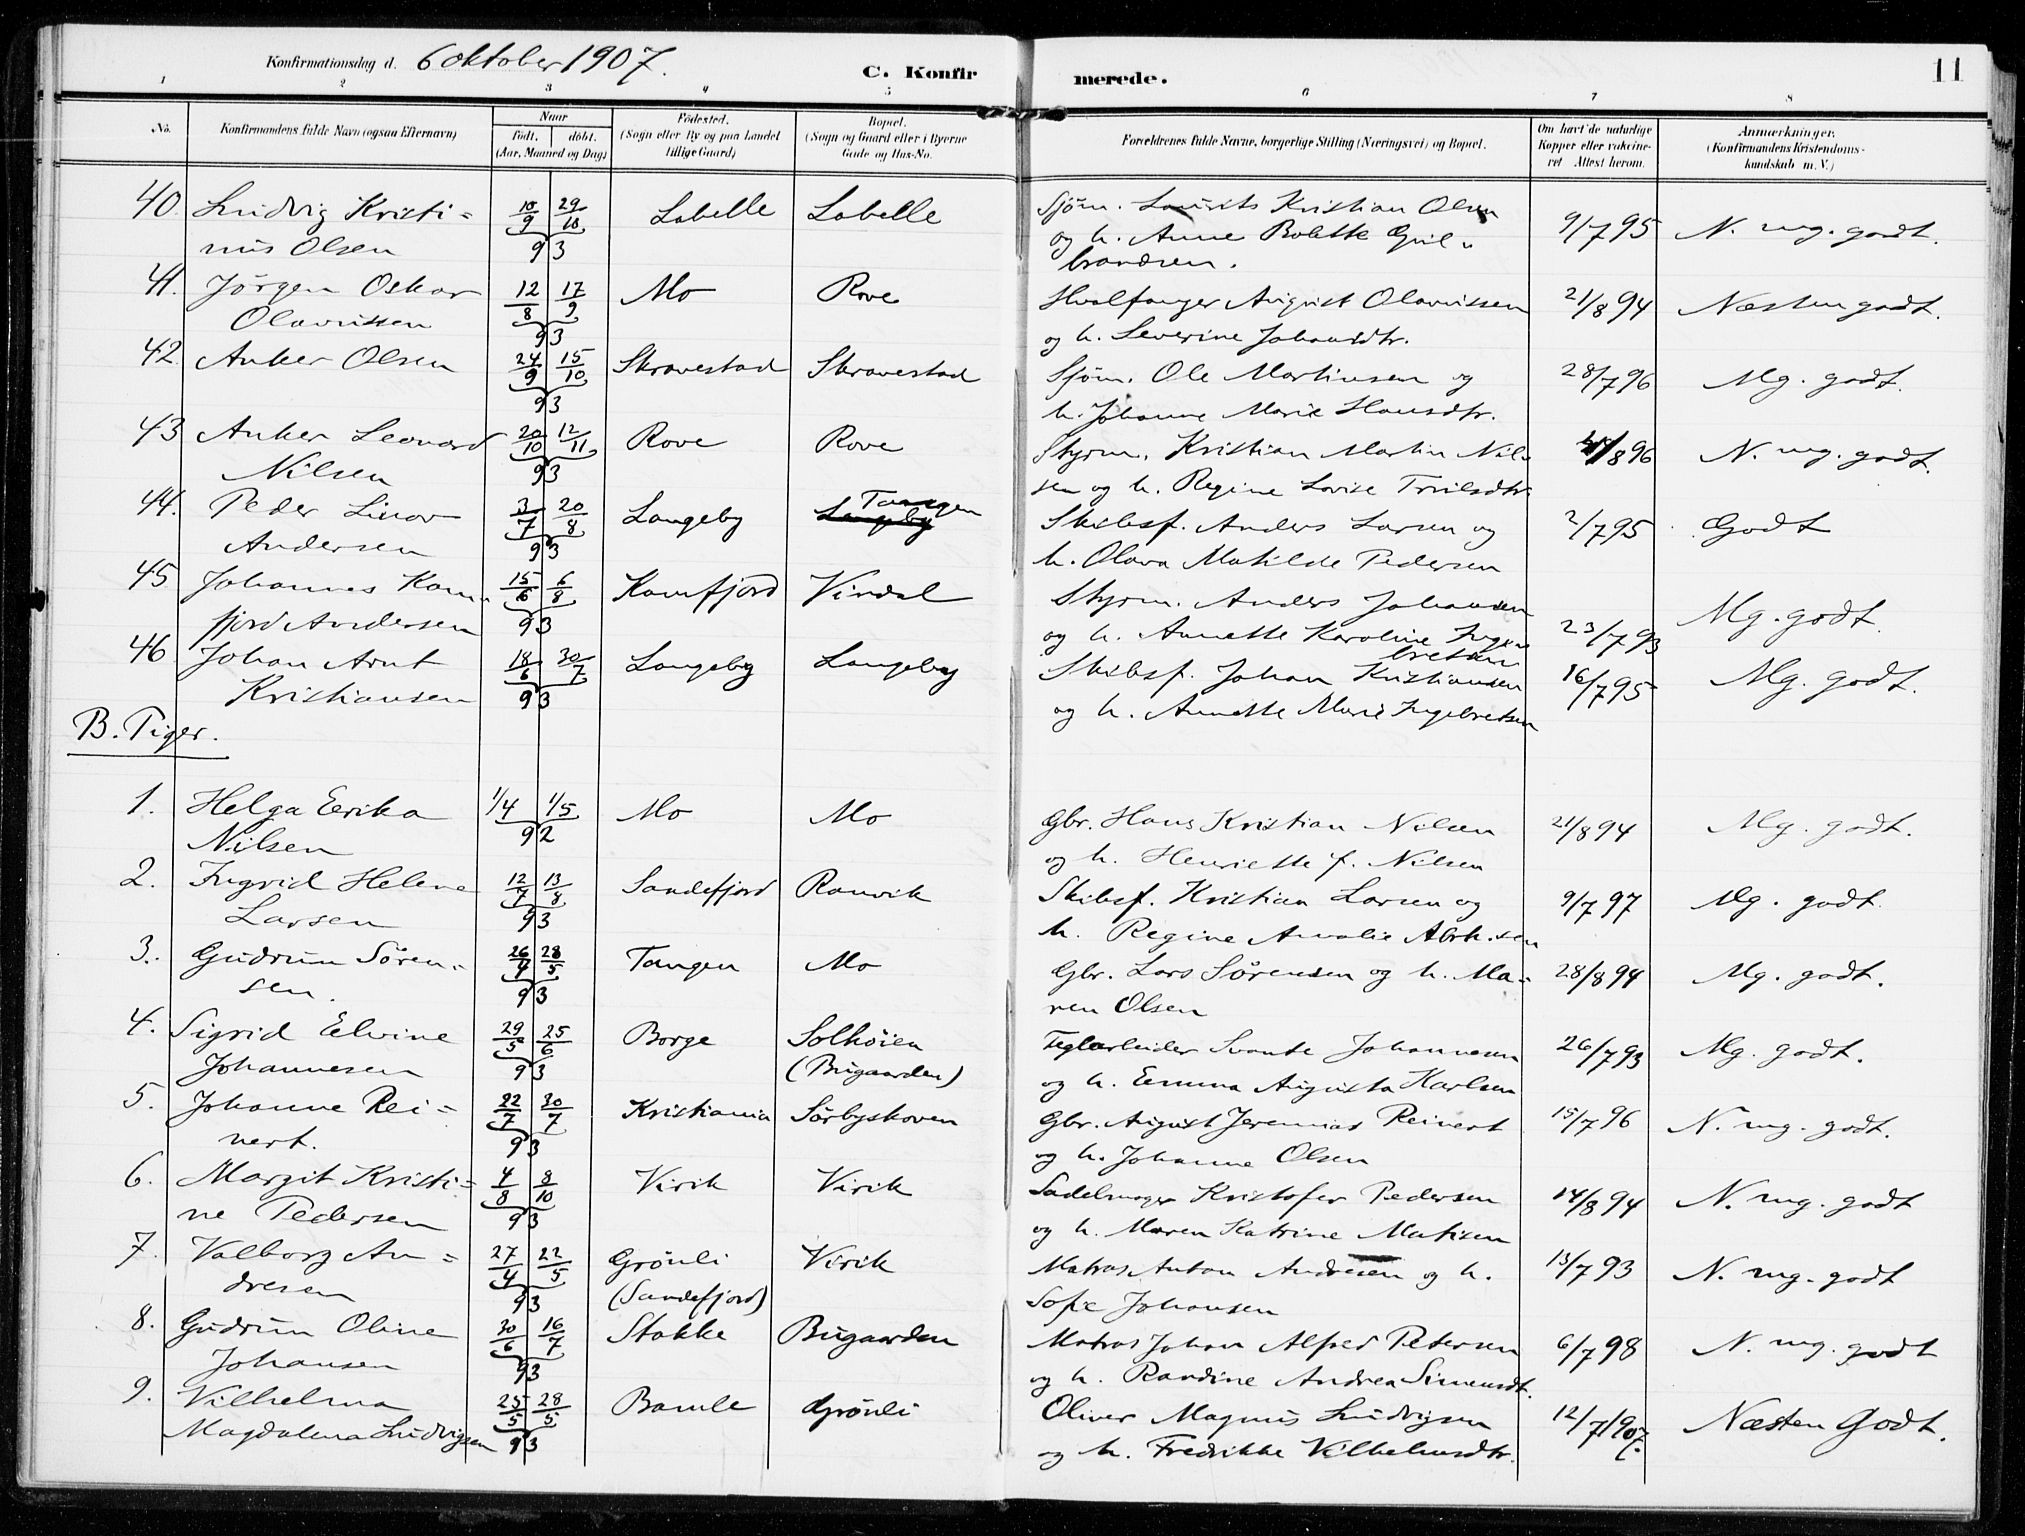 Konfirmationsdag d. 6 oktober 1907.
C. Konfirmerede.
11
1 2 3 4 5 6 7 8
No. Konfirmandens fulde Navn (ogsaa Efternavn) Naar Födt. döbt. (Aar, Maaned og Dag) Födested. (Sogn eller By og paa Landet tillige Gaard) Bopæl. (Sogn og Gaard eller i Byerne Gade og Hus-No. Forældrenes fulde Navne, borgerlige Stilling (Næringsvei) og Bopæl. Om havt de naturlige Kopper eller vakcineret Attest herom. Anmærkninger. (Konfirmandens Kristendomskundskab m. V.)
40. Ludvig Kristi= 10/9 29/10 Labelle Labelle Sjöm. Laurits Kristian Olsen 9/7 95 N. mg. godt.
nus Olsen 93 og h. Anne Bolette Gul=
brandsen.
41. Jörgen Oskar 12/8 17/9 Mo Rove Hvalfanger August Olavussen 21/8 94 Næsten godt.
Olavussen 93 og h. Severine Johansdtr.
42 Anker Olsen 24/9 15/10 Skravestad Skravestad Sjöm. Ole Martinsen og 28/7 96 Mg. godt.
93 h. Johanne Marie Hansdtr.
43 Anker Leonard 20/10 12/11 Rove Rove Styrm. Kristian Martin Nil= /8 96 N. mg. godt.
Nilsen 93 sen og h. Regine Lovise Truilsdtr
44. Peder Linor 3/7 20/8 Langeby Langeby Tangen Skibsf. Anders Larsen og 2/7 95 Godt
Andersen 93 h. Olava Matilde Pedersen
45 Johannes Kam= 15/6 6/8 Kamfjord Virdal Styrm. Anders Johansen 23/7 93 Mg. godt.
fjord Andersen 93 og h. Annette Karoline Inge=
bretsen
46 Johan Arnt 18/6 30/7 Langeby Langeby Skibsf. Johan Kristiansen 16/7 95 Mg. godt.
Kristiansen 93 og h. Annette Marie Ingebretsen
B. Piger.
1. Helga Eerika 1/4 1/5 Mo Mo Gbr. Hans Kristian Nilsen 21/8 94 Mg. godt.
Nilsen 92 og h. Henriette f. Nilsen
2. Ingrid Helene 12/7 13/8 Sandefjord Ranvik Skibsf. Kristian Larsen og 9/7 97 Mg. godt.
Larsen 93 h. Regine Amalie Abrh.sen
3. Gudrun Sören= 26/4 28/5 Tangen Mo Gbr. Lars Sörensen og h. Ma= 28/8 94 Mg. godt.
sen. 93 ren Olsen
4. Sigrid Elvine 29/5 25/6 Borge Solhöien Teglarbeider Svante Johannesen 26/7 93 Mg. godt.
Johannesen 93 (Bugaarden) og h. Emma Augusta Karlsen
5. Johanne Rei= 22/7 30/7 Kristiania Sörbyskoven Gbr. August Jeremias Reinert 15/7 96 N. mg. godt.
nert. 93 og h. Johanne Olsen
6. Margit Kristi= 4/8 8/10 Virik Virik Sadelmager Kristofer Pedersen 14/8 94 N. mg. godt
ne Pedersen 93 og h. Maren Katrine Matisen
7. Valborg An= 27/4 22/5 Grönli Virik Matros Anton Andresen og h. 13/7 93 N. mg. godt
dresen 93 (Sandefjord) Sofie Johansen
8. Gudrun Oline 30/6 16/7 Stokke Bugaarden Matros Johan Alfred Petersen 6/7 98 N. mg. godt
Johansen 93 og h. Randine Andrea Simensdt.
9. Vilhelma 25/5 28/5 Bamle Grönli Oliver Magnus Ludvigsen 12/7 1907. Næsten Godt.
Magdalena Ludvigsen 93 og h. Fredrikke Vilhelmsdtr.